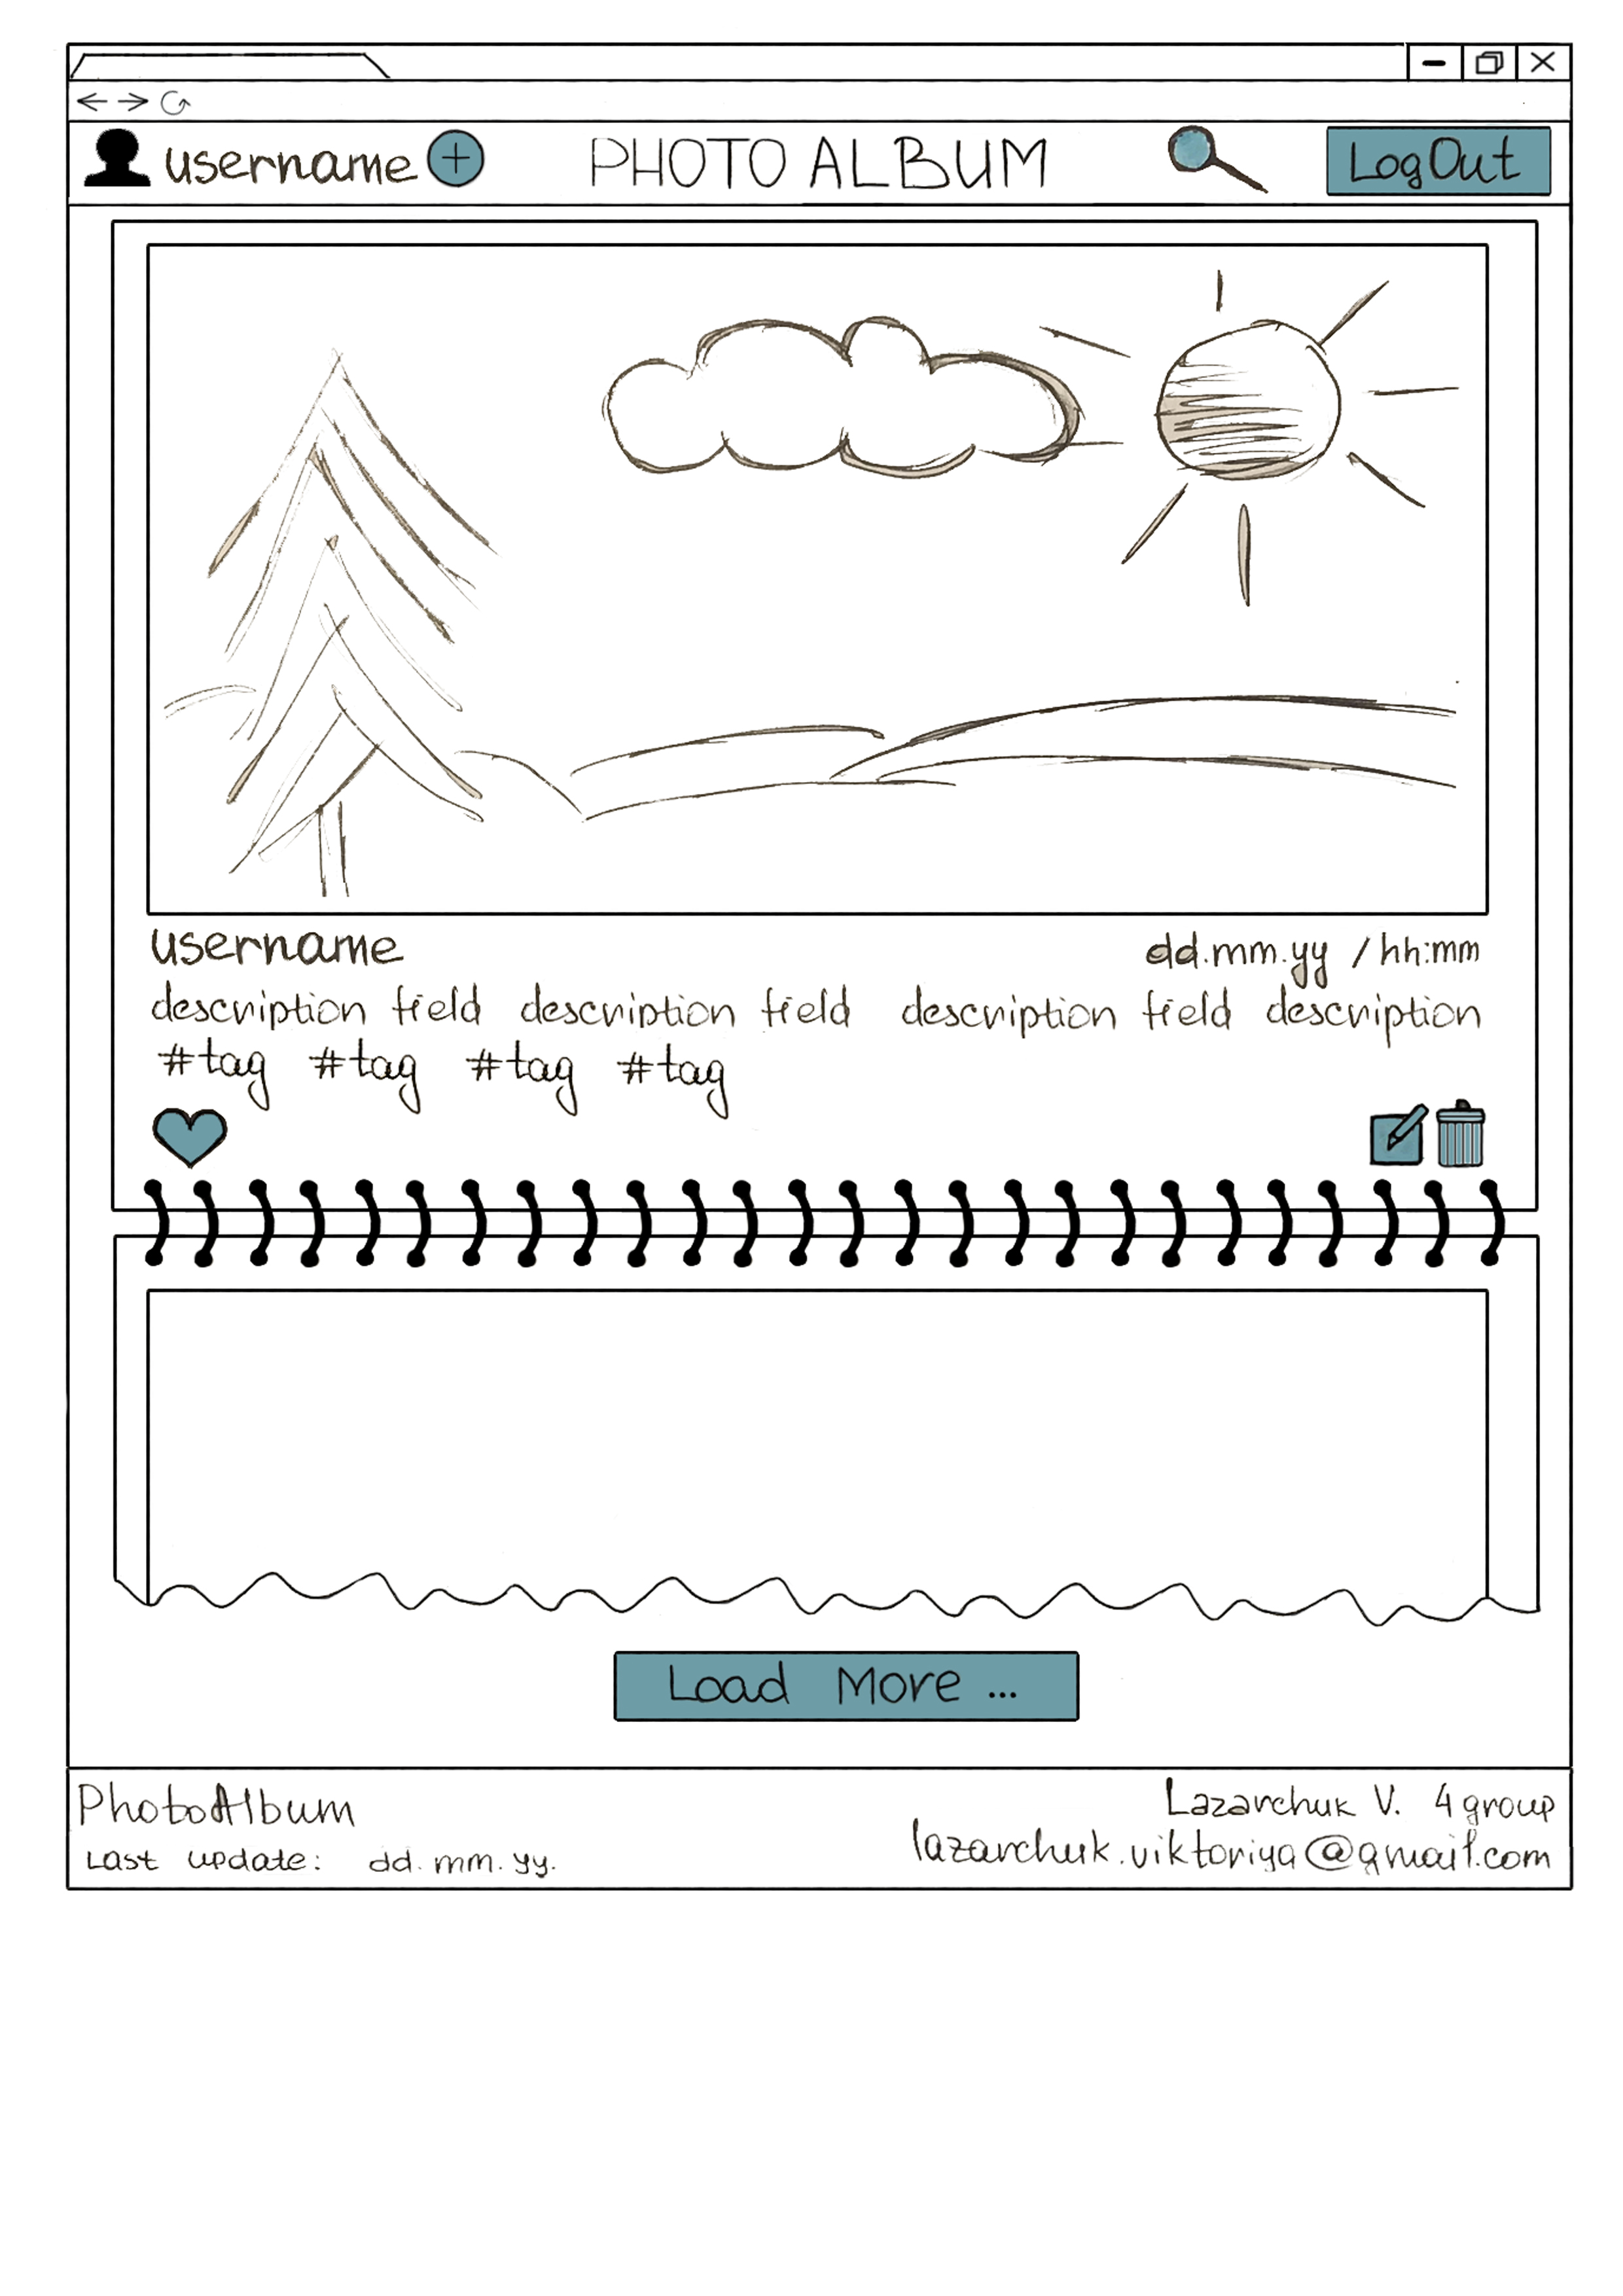 username PHOTO ALBUM LogOut
username dd.mm.yy / hh:mm
description field description field description field description
#tag #tag #tag #tag
Load More ...
PhotoAlbum Lazarchuk V. 4 group
Last update: dd.mm.yy. lazarchuk.viktoriya@gmail.com